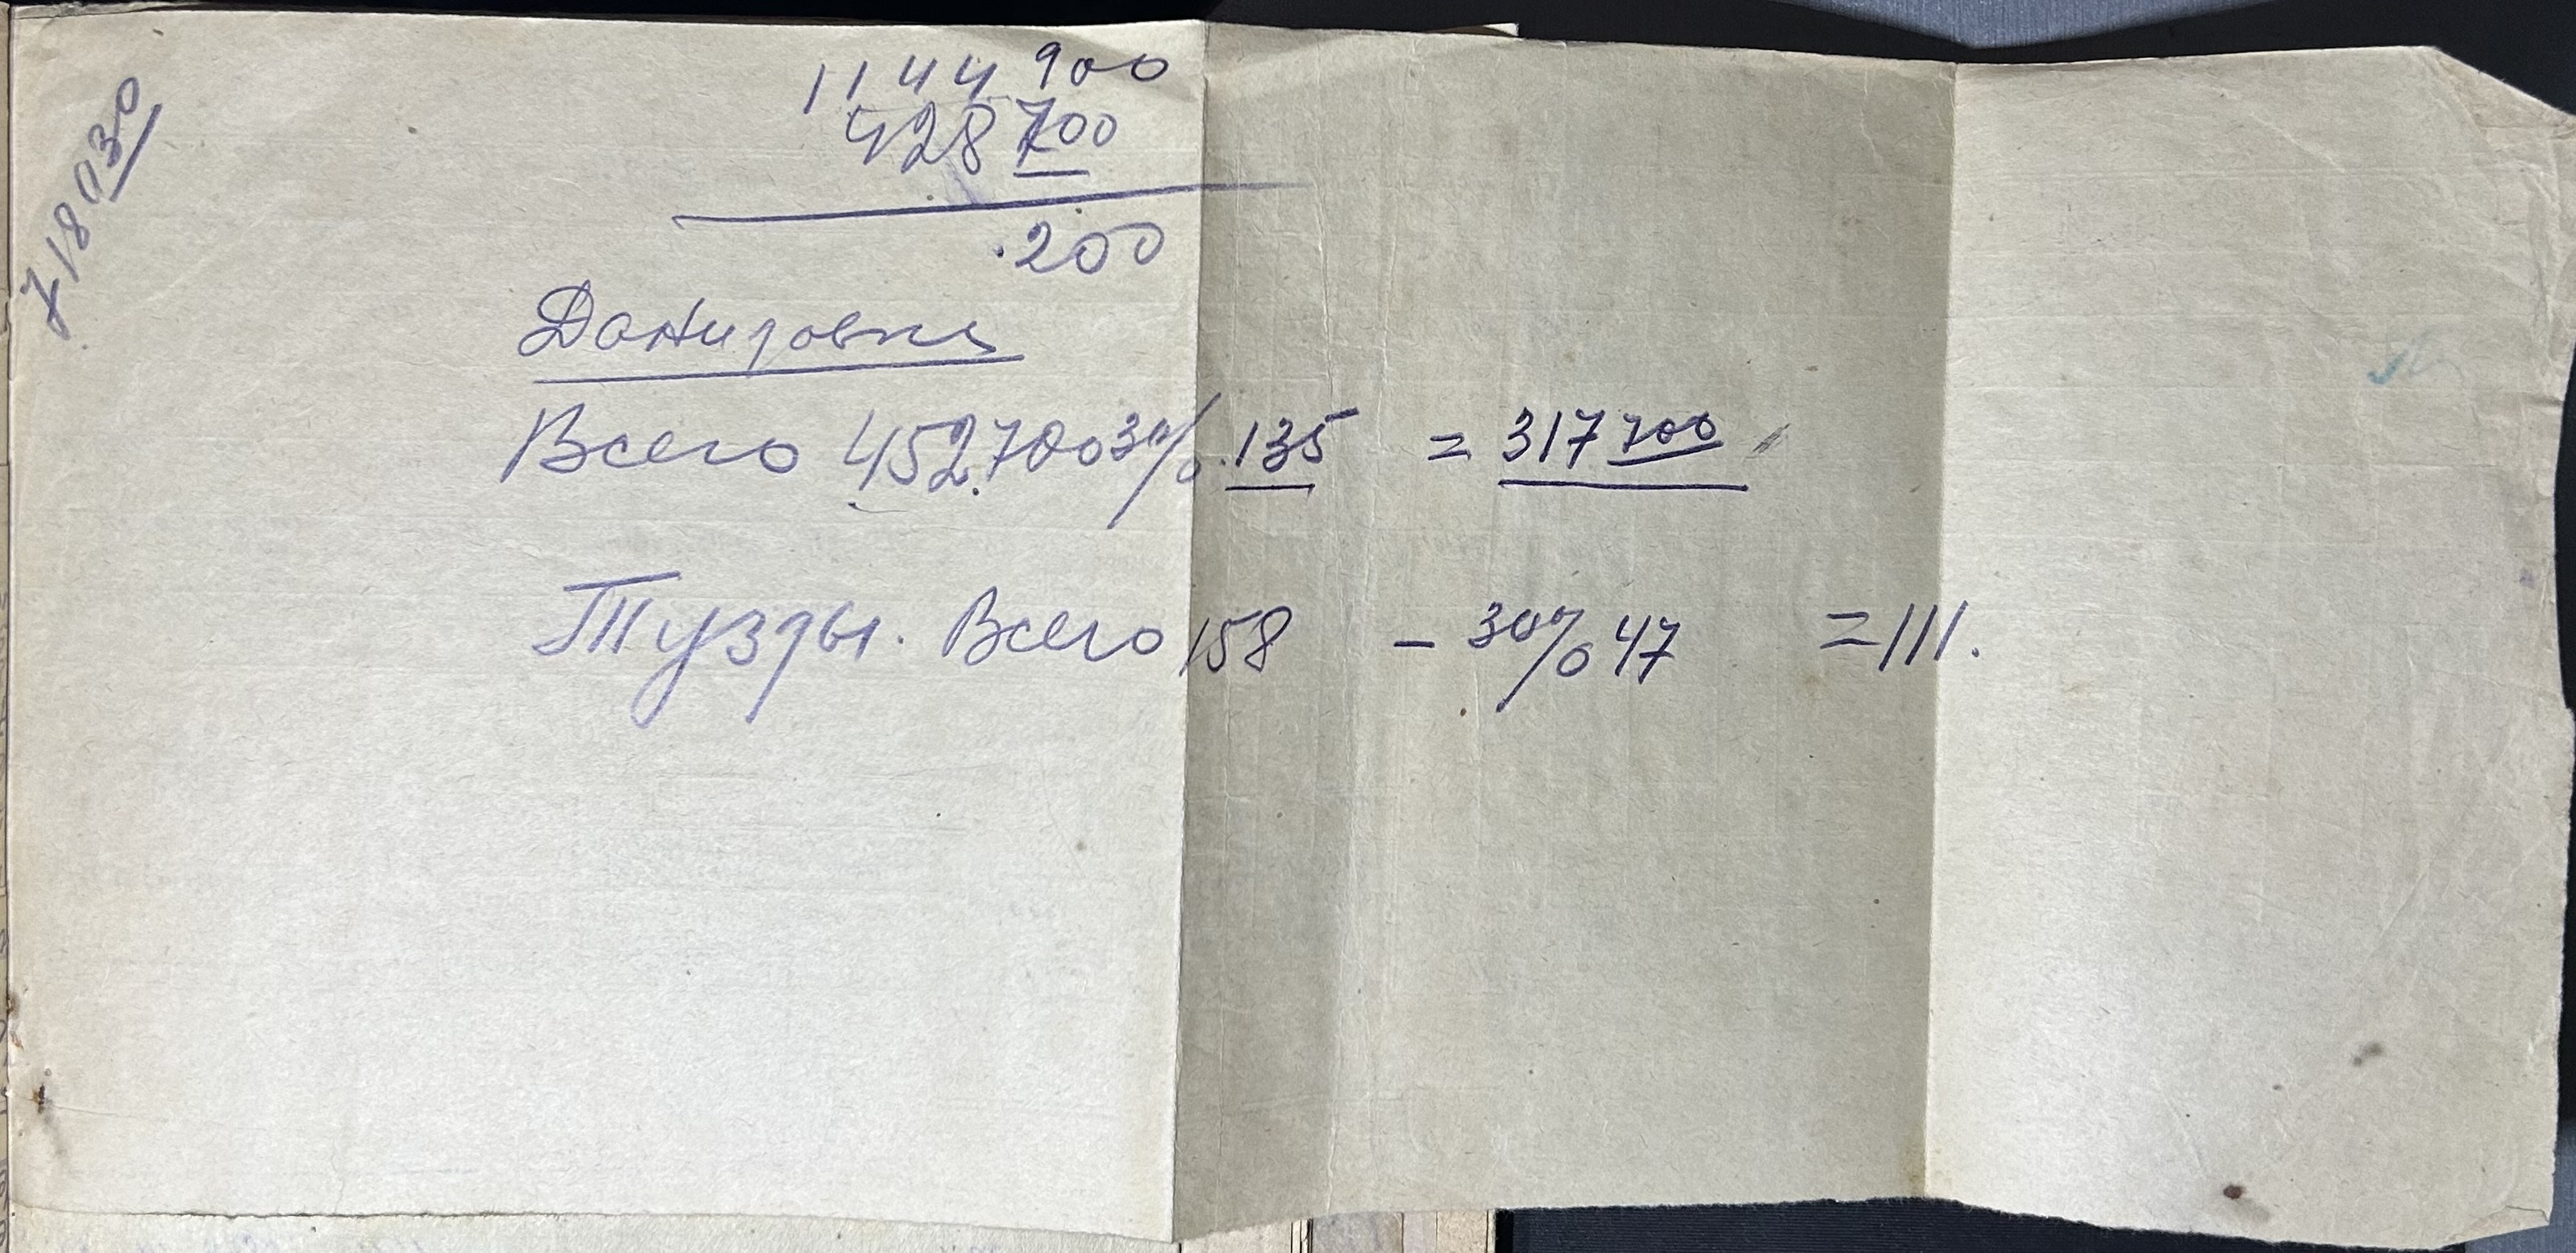 718030
1144 900
428 700
.200
Данировка
Всего 452.700 30% .135 = 317 700
Тузды. Всего 158 - 30% 47 = 111.